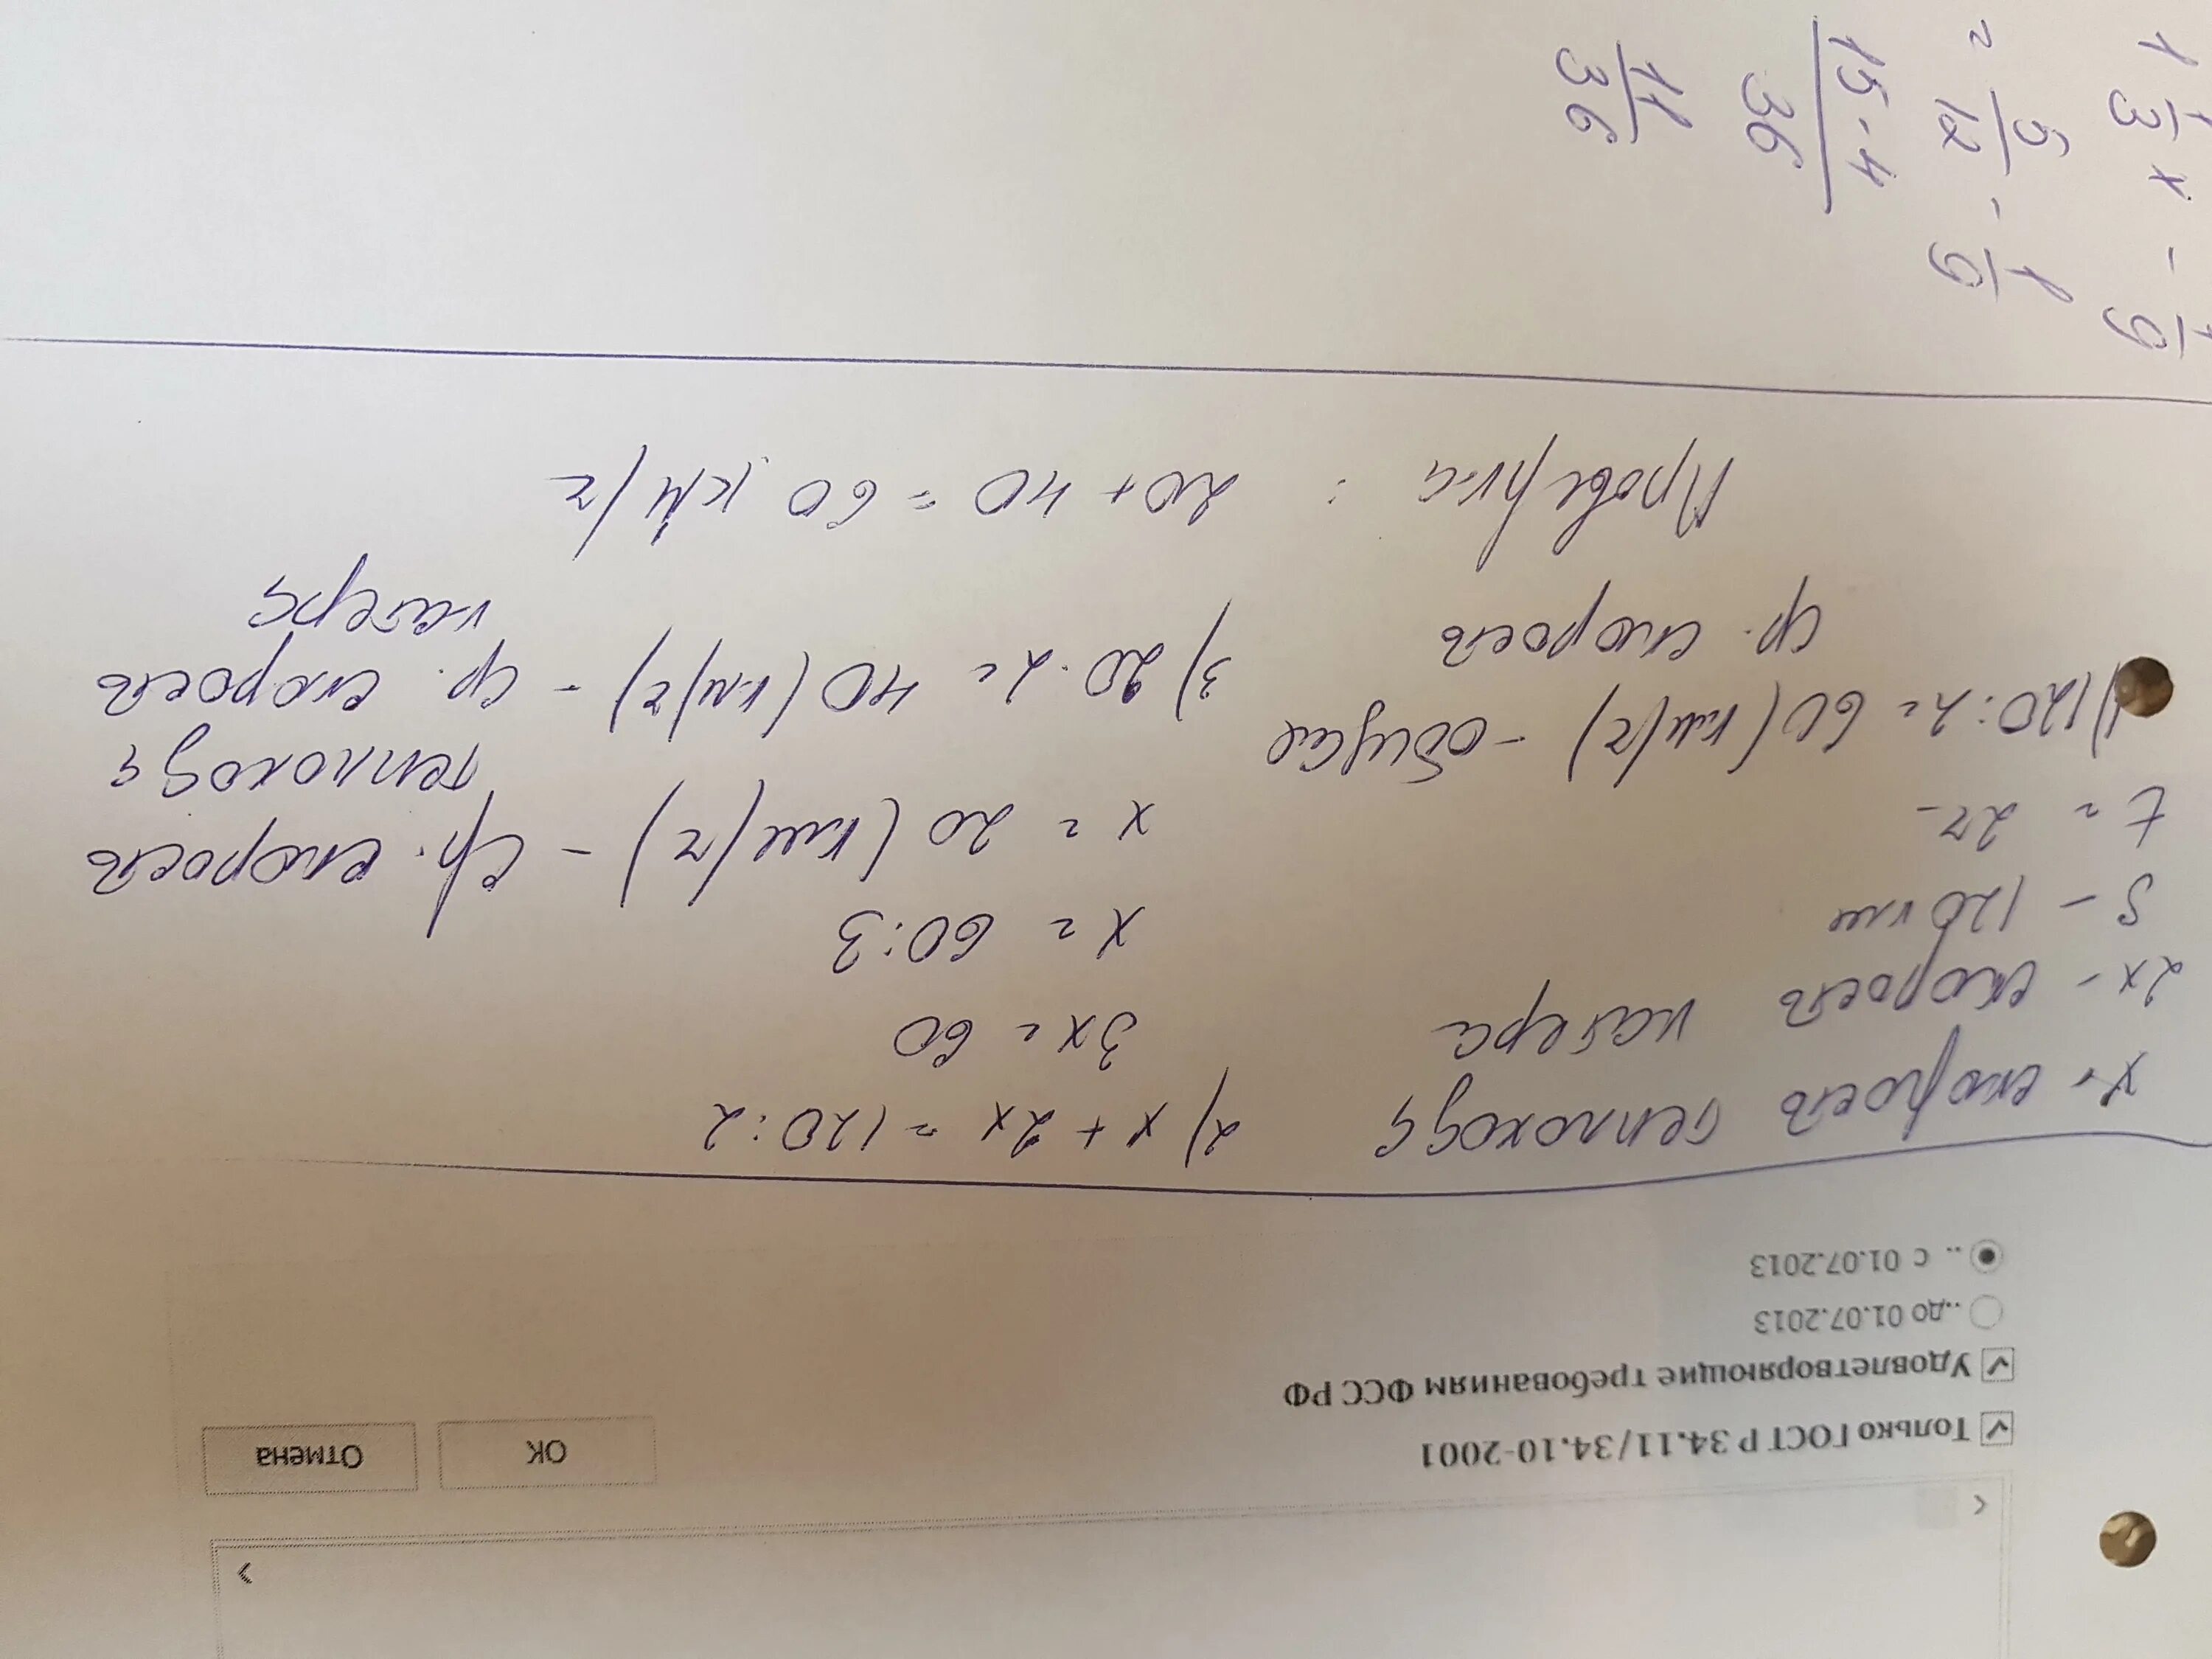 Только ГОСТ Р 34.11/34.10-2001
Удовлетворяющие требованиям ФСС РФ
..до 01.07.2013
.. с 01.07.2013
ОК
Отмена
x - скорость теплохода
2x - скорость катера
S - 120 км
t = 2ч
1) 120 : 2 = 60 (км/ч) - общая
ср. скорость
2) x + 2x = 120 : 2
3x = 60
x = 60 : 3
x = 20 (км/ч) - ср. скорость
теплохода
3) 20 · 2 = 40 (км/ч) - ср. скорость
катера
Проверка : 20 + 40 = 60 км/ч
1 1/3 x - 1/9
= 5/12 - 1/9
15 - 4
36
11
36